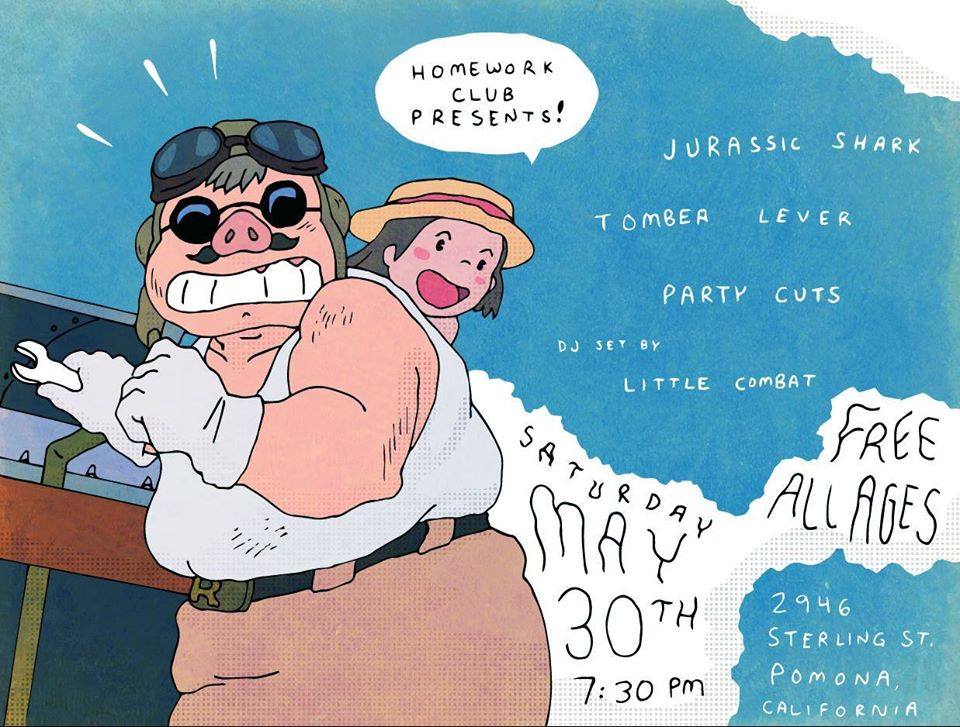 HOMEWORK
CLUB
PRESENTS!
JURASSIC SHARK
TOMBER LEVER
PARTY CUTS
DJ SET BY
LITTLE COMBAT
SATURDAY
MAY
30TH
7:30 PM
FREE
ALL AGES
2946
STERLING ST.
POMONA,
CALIFORNIA
R